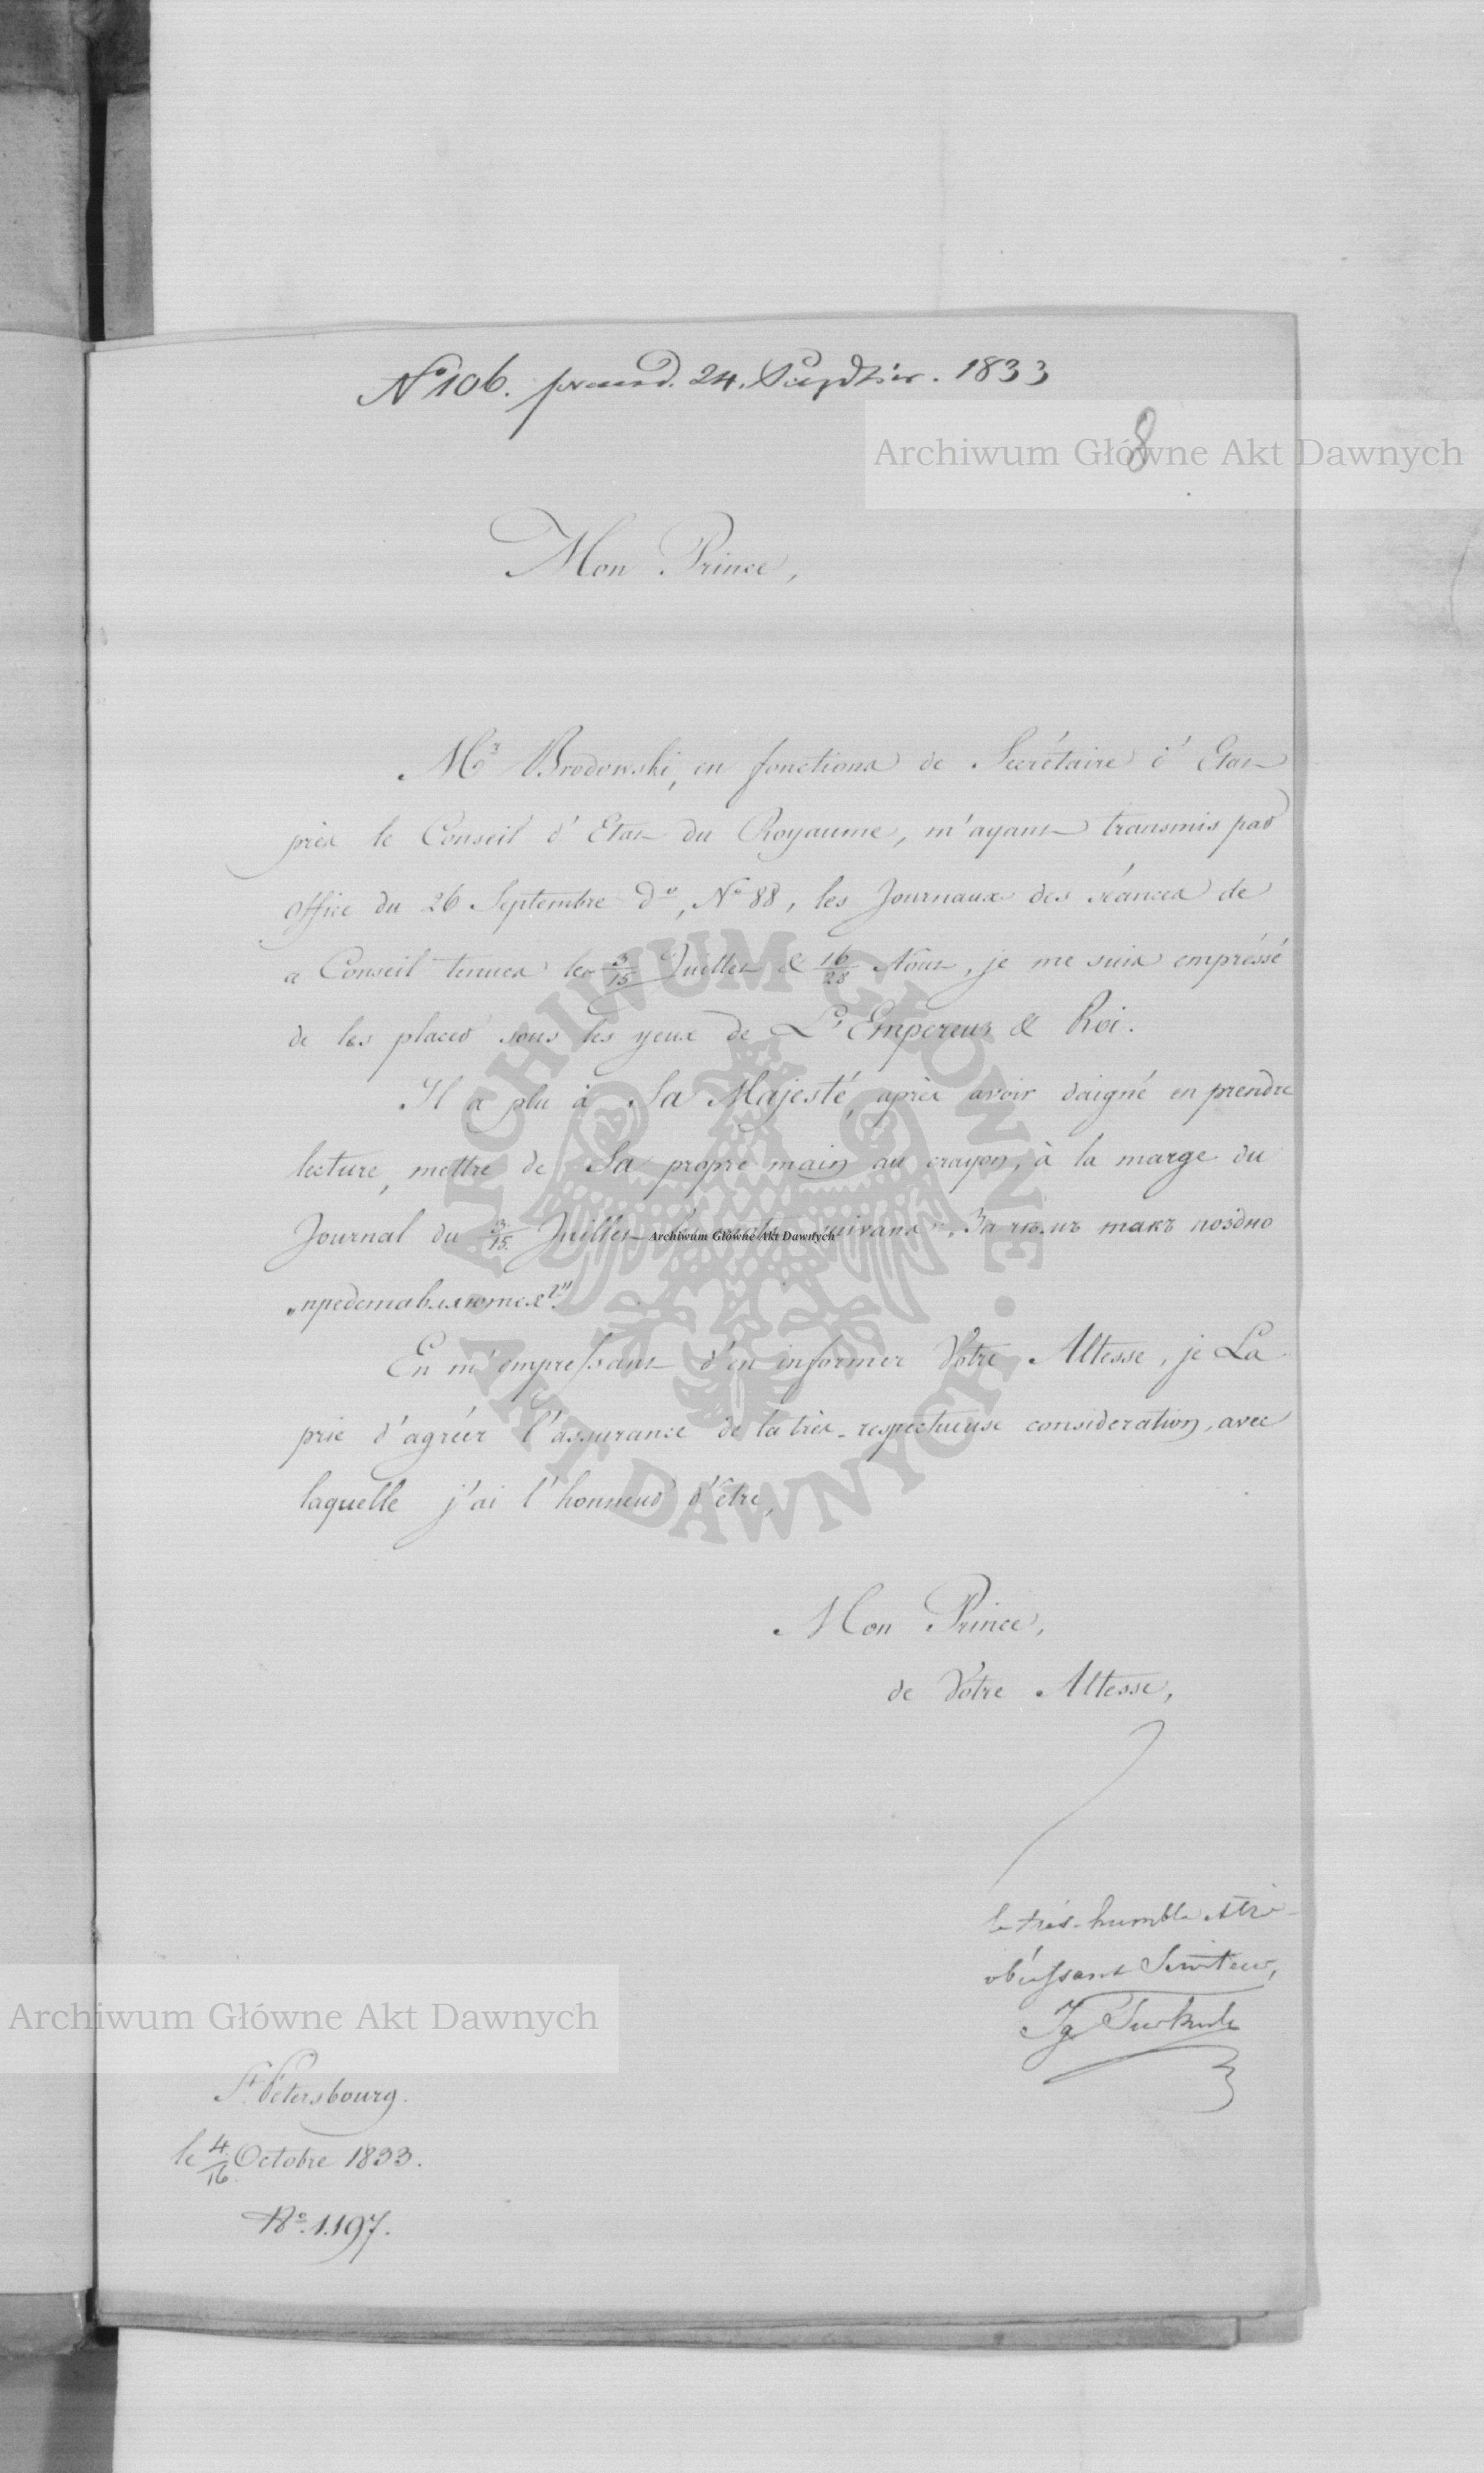 № 106. praes. d. 24. Paździer. 1833
8
Archiwum Główne Akt Dawnych
Mon Prince,
Mr Brodowski, en fonctions de Secrétaire d'Etat
près le Conseil d'Etat du Royaume, m'ayant transmis par
office du 26 Septembre do, No 88, les Journaux des séances de
ce Conseil tenues les 3/15 Juillet & 16/28 Aout, je me suis empréssé
de les placer sous les yeux de L'Empereur & Roi.
Il a plu à Sa Majesté, après avoir daigné en prendre
lecture, mettre de Sa propre main au crayon, à la marge du
Journal du 3/15. Juillet les mots suivans: „За чѣмъ такъ поздно
„представляются?"
Archiwum Główne Akt Dawnych
En m'empressant d'en informer Votre Altesse, je La
prie d'agréer l'assurance de la très-respectueuse consideration, avec
laquelle j'ai l'honneur d'être,
Mon Prince,
de Votre Altesse,
le très-humble & très-
obéissant Serviteur,
Ig Turkull
Archiwum Główne Akt Dawnych
St Pétersbourg.
le 4/16. Octobre 1833.
No. 1197.
ARCHIWUM GŁÓWNE AKT DAWNYCH